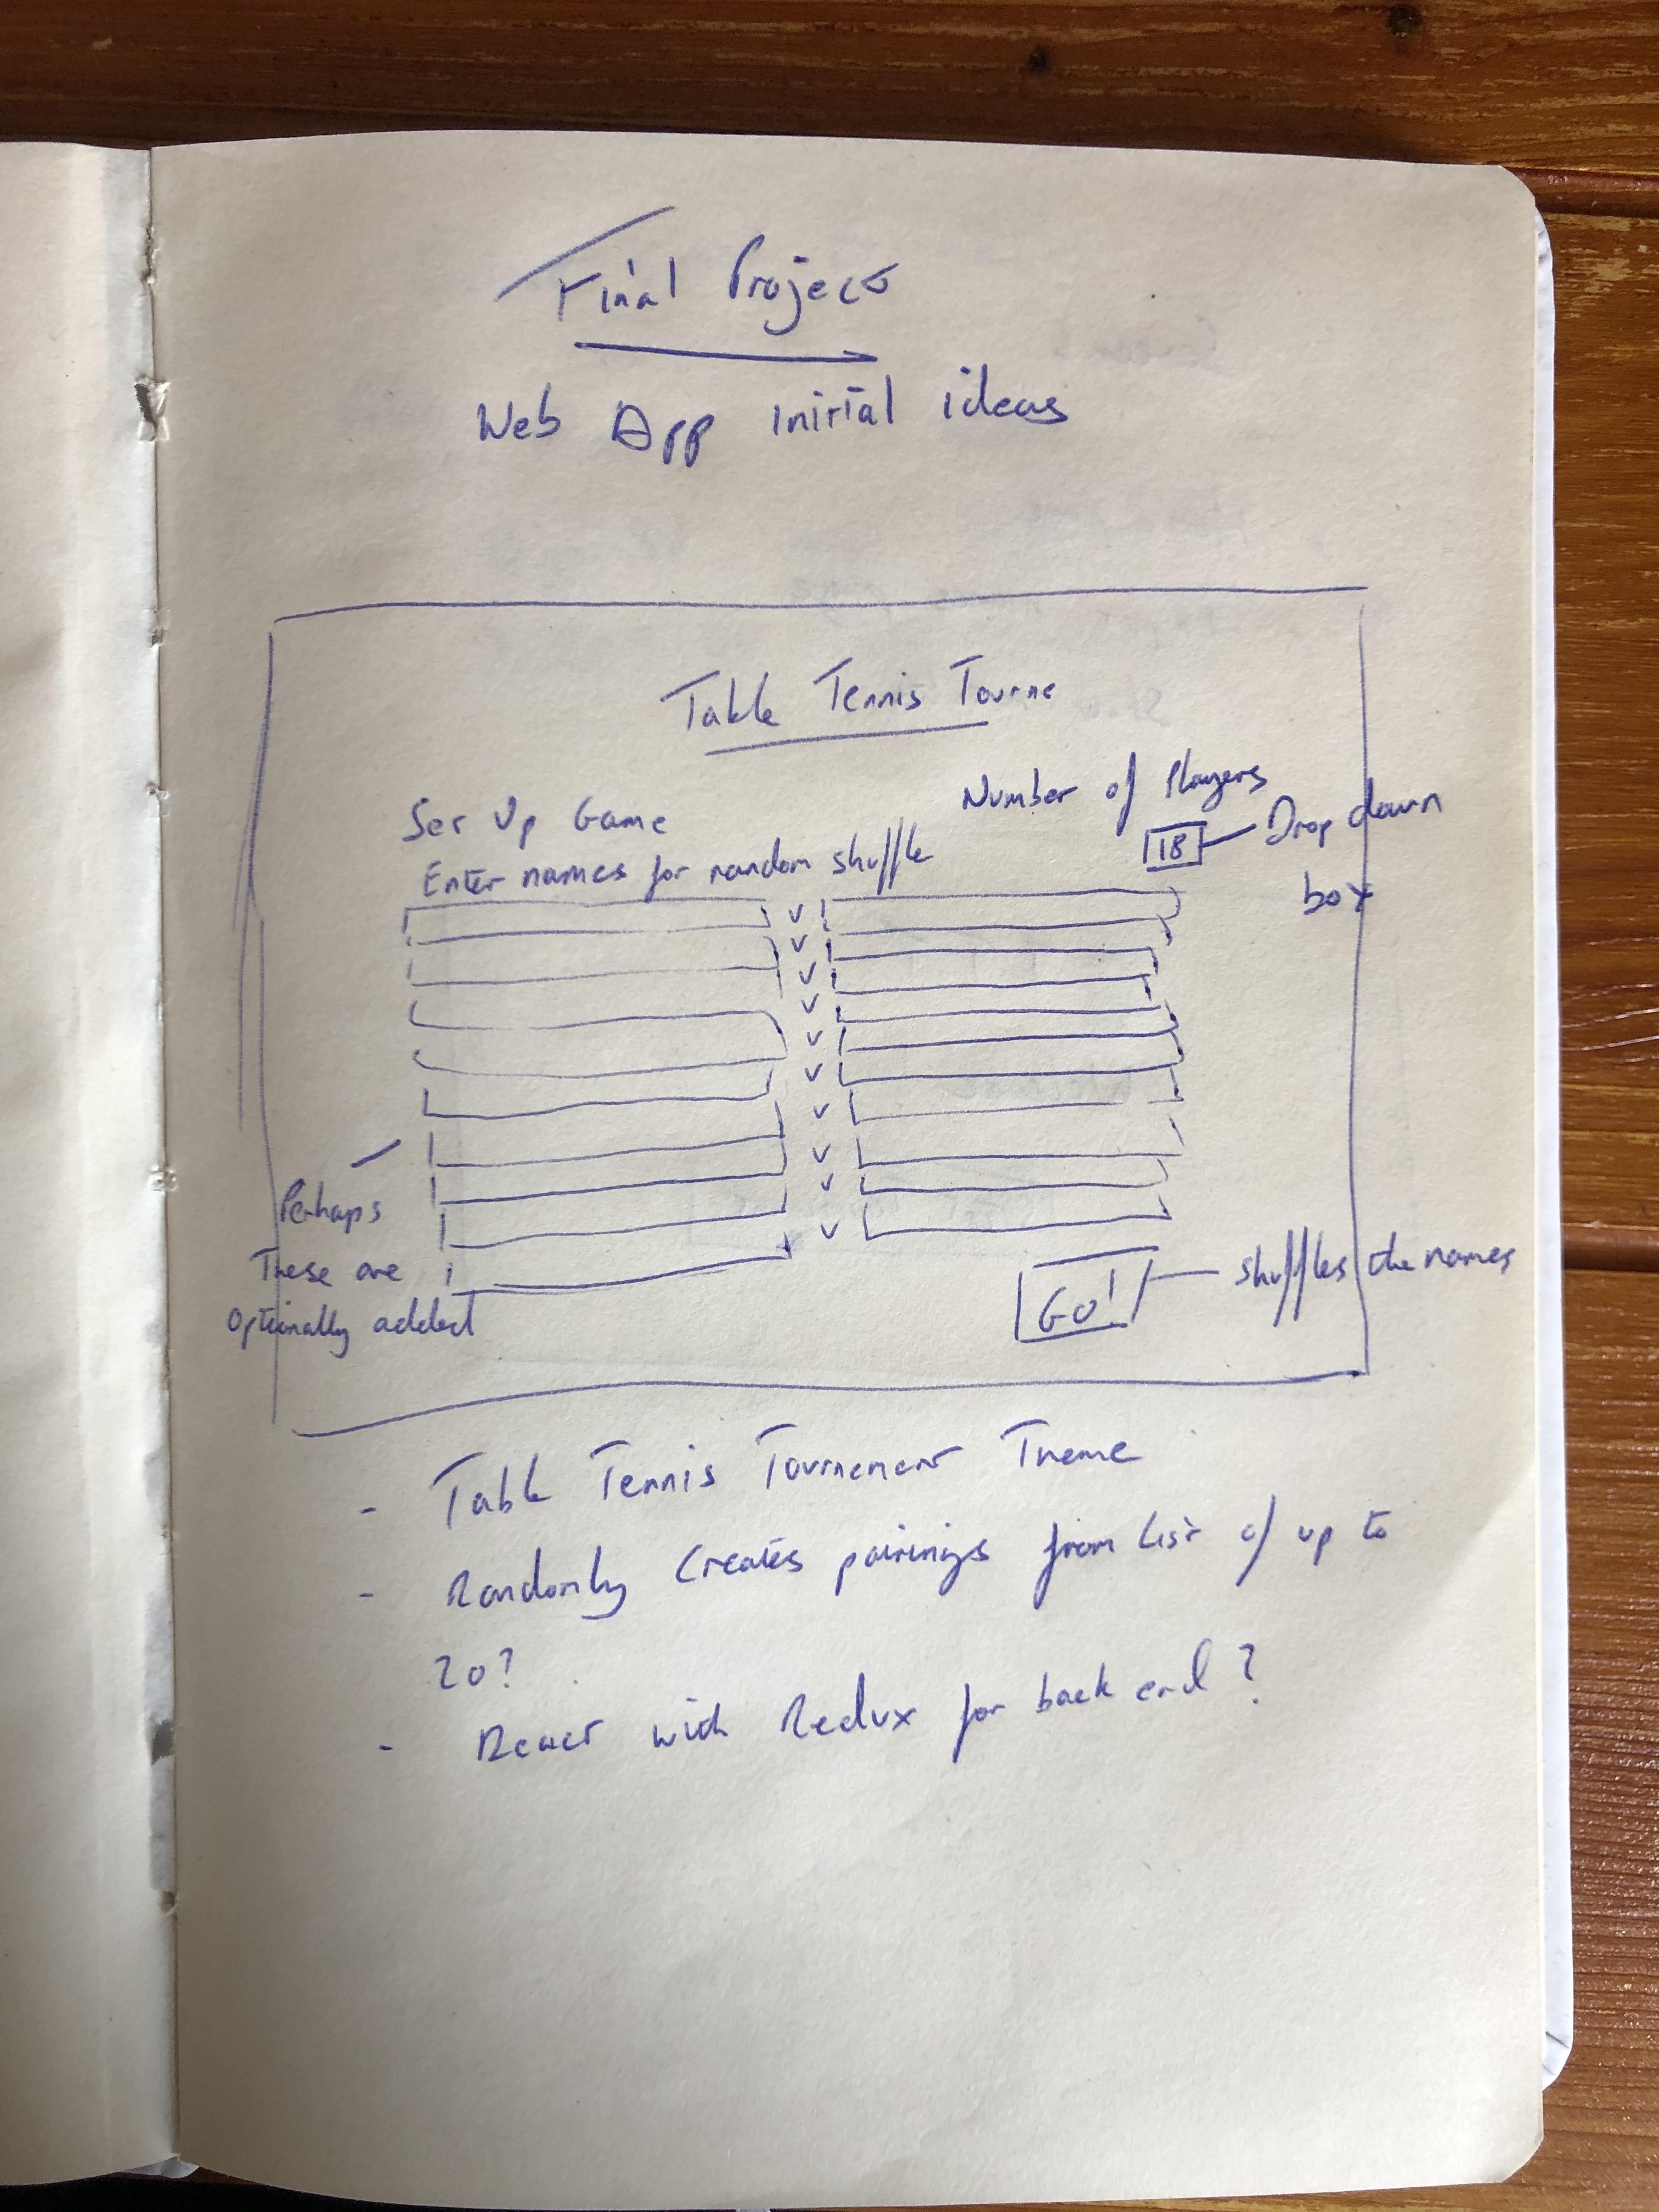 Final Project
Web App initial ideas
Table Tennis Tourne
Number of Players
Set Up Game
18
Drop down
box
Enter names for random shuffle
v
v
v
v
v
v
v
v
v
v
Perhaps
These are
optionally added
GO!
shuffles the names
- Table Tennis Tournement Theme
- Randomly Creates pairings from List of up to
20?
- React with Redux for back end?